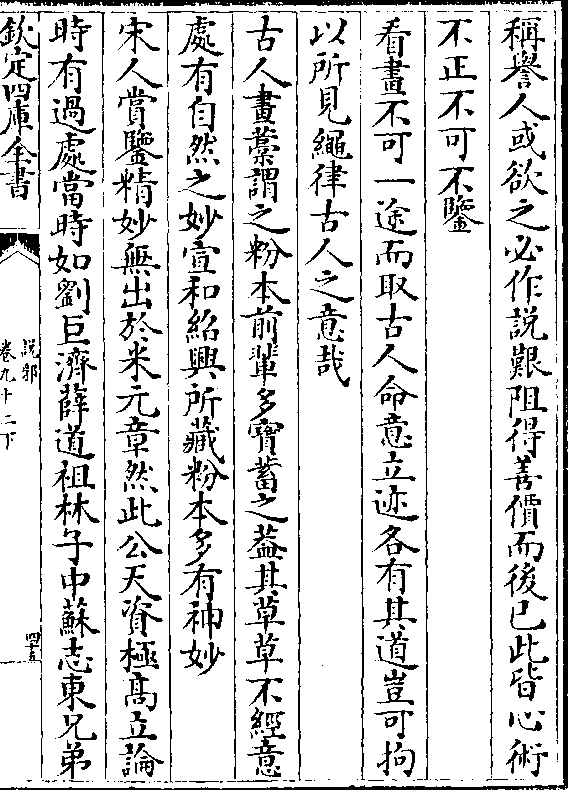 稱譽人或欲之必作説艱阻得善價而後已此皆心術
不正不可不鑒
看畫不可一途而取古人命意立迹各有其道豈可拘
以所見繩律古人之意哉
古人畫藁謂之粉本前輩多寳蓄之葢其草草不經意
處有自然之妙宣和紹興所藏粉本多有神妙
宋人賞鑒精妙無出於米元章然此公天資極髙立論
時有過處當時如劉巨濟薛道祖林子中蘇志東兄弟
欽定四庫全書
説郛
卷九十二下
四十五